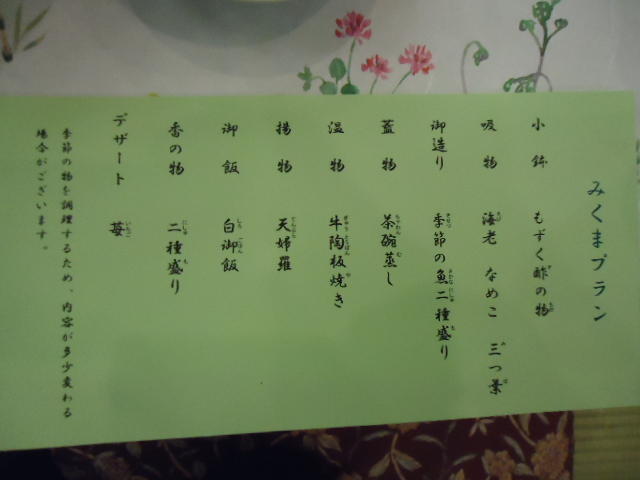 みくまプラン
小鉢 もずく酢の物
吸物 海老 なめこ 三つ葉
御造り 季節の魚二種盛り
蓋物 茶碗蒸し
温物 牛陶板焼き
揚物 天婦羅
御飯 白御飯
香の物 二種盛り
デザート 苺
季節の物を調理するため、内容が多少変わる
場合がございます。